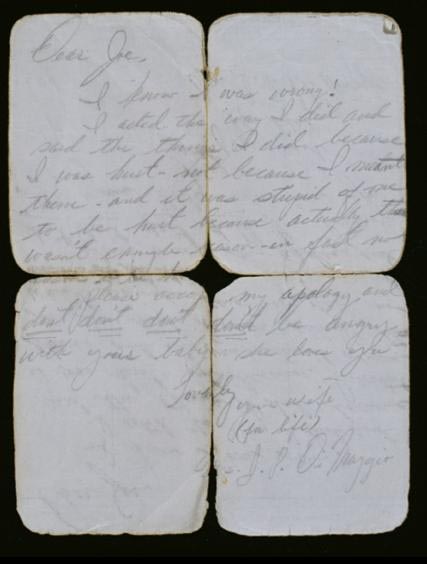 Dear Joe,
I know I was wrong!
I acted the way I did and
said the things I did because
I was hurt - not because I meant
them - and it was stupid of me
to be hurt because actually there
wasn't enough reason - in fact no
reason at all
Please accept my apology and
don't don't don't don't be angry
with your baby - she loves you
Lovingly
your wife
(for life)
Mrs. J. P. Di Maggio